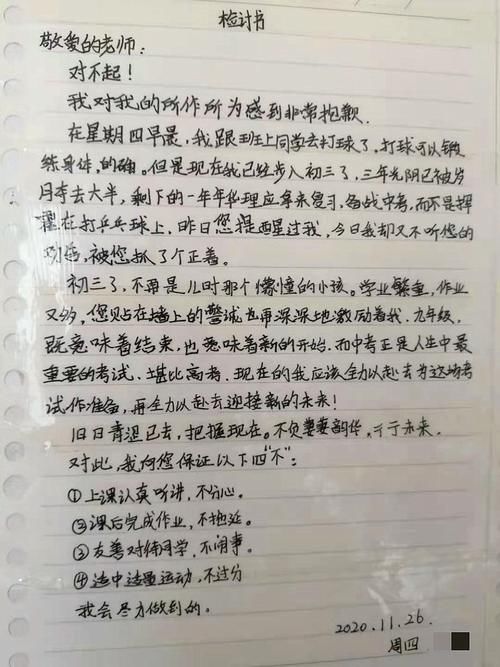 检讨书
敬爱的老师：
对不起！
我对我的所作所为感到非常抱歉.
在星期四早晨，我跟班上同学去打球了，打球可以锻
练身体，的确。但是现在我已经步入初三了，三年光阴已被岁
月夺去大半，剩下的一年年华理应拿来复习，备战中考，而不是挥
霍在打乒乓球上，昨日您提醒过我，今日我却又不听您的
劝告，被您抓了个正着。
初三了，不再是儿时那个懵懂的小孩。学业繁重，作业
又多，您贴在墙上的警诫也再深深地激励着我.九年级，
既意味着结束，也意味着新的开始.而中考正是人生中最
重要的考试.堪比高考.现在的我应该全力以赴去为这场考
试作准备，再全力以赴去迎接新的未来！
旧日青涩已去，把握现在。不负萋萋韶华，亍亍未来.
对此，我向您保证以下四"不"：
①上课认真听讲，不分心。
②课后完成作业，不拖延。
③友善对待同学，不闹事。
④适中适量运动，不过分
我会尽力做到的。
2020.11.26
周四